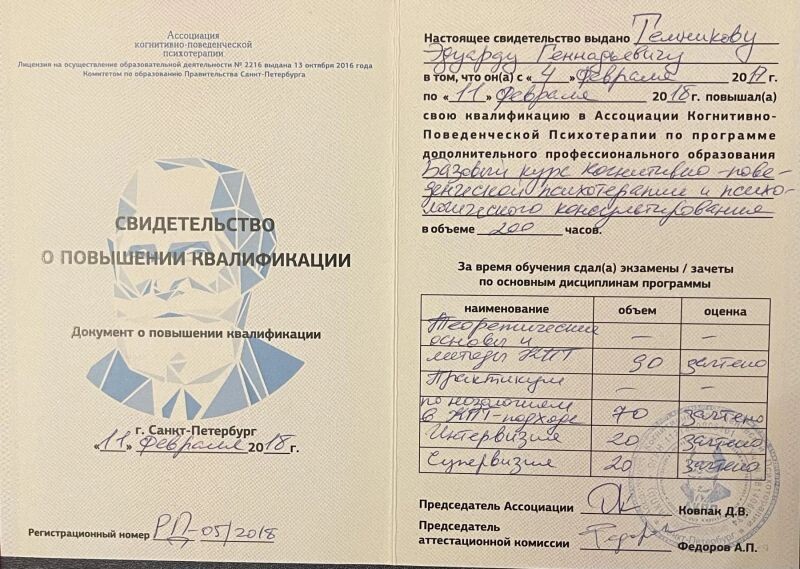 Ассоциация
когнитивно-поведенческой
психотерапии
Лицензия на осуществление образовательной деятельности № 2216 выдана 13 октября 2016 года
Комитетом по образованию Правительства Санкт-Петербурга
СВИДЕТЕЛЬСТВО
О ПОВЫШЕНИИ КВАЛИФИКАЦИИ
Документ о повышении квалификации
г. Санкт-Петербург
«11» Февраля 2018 г.
Регистрационный номер РП-05/2018
Настоящее свидетельство выдано Темникову
Эдуарду Геннадьевичу
в том, что он(а) с «4» Февраля 2017 г.
по «11» Февраля 2018 г. повышал(а)
свою квалификацию в Ассоциации Когнитивно-
Поведенческой Психотерапии по программе
дополнительного профессионального образования
Базовый курс когнитивно-пове-
денческой психотерапии и психо-
логического консультирования
в объеме 200 часов.
За время обучения сдал(а) экзамены / зачеты
по основным дисциплинам программы
наименование объем оценка
Теоретические
основы и — —
методы КПТ 90 зачтено
Практикум — —
по нозологиям
в КПТ-подходе 70 зачтено
Интервизия 20 зачтено
Супервизия 20 зачтено
Председатель Ассоциации Ковпак Д.В.
Председатель
аттестационной комиссии Федоров А.П.